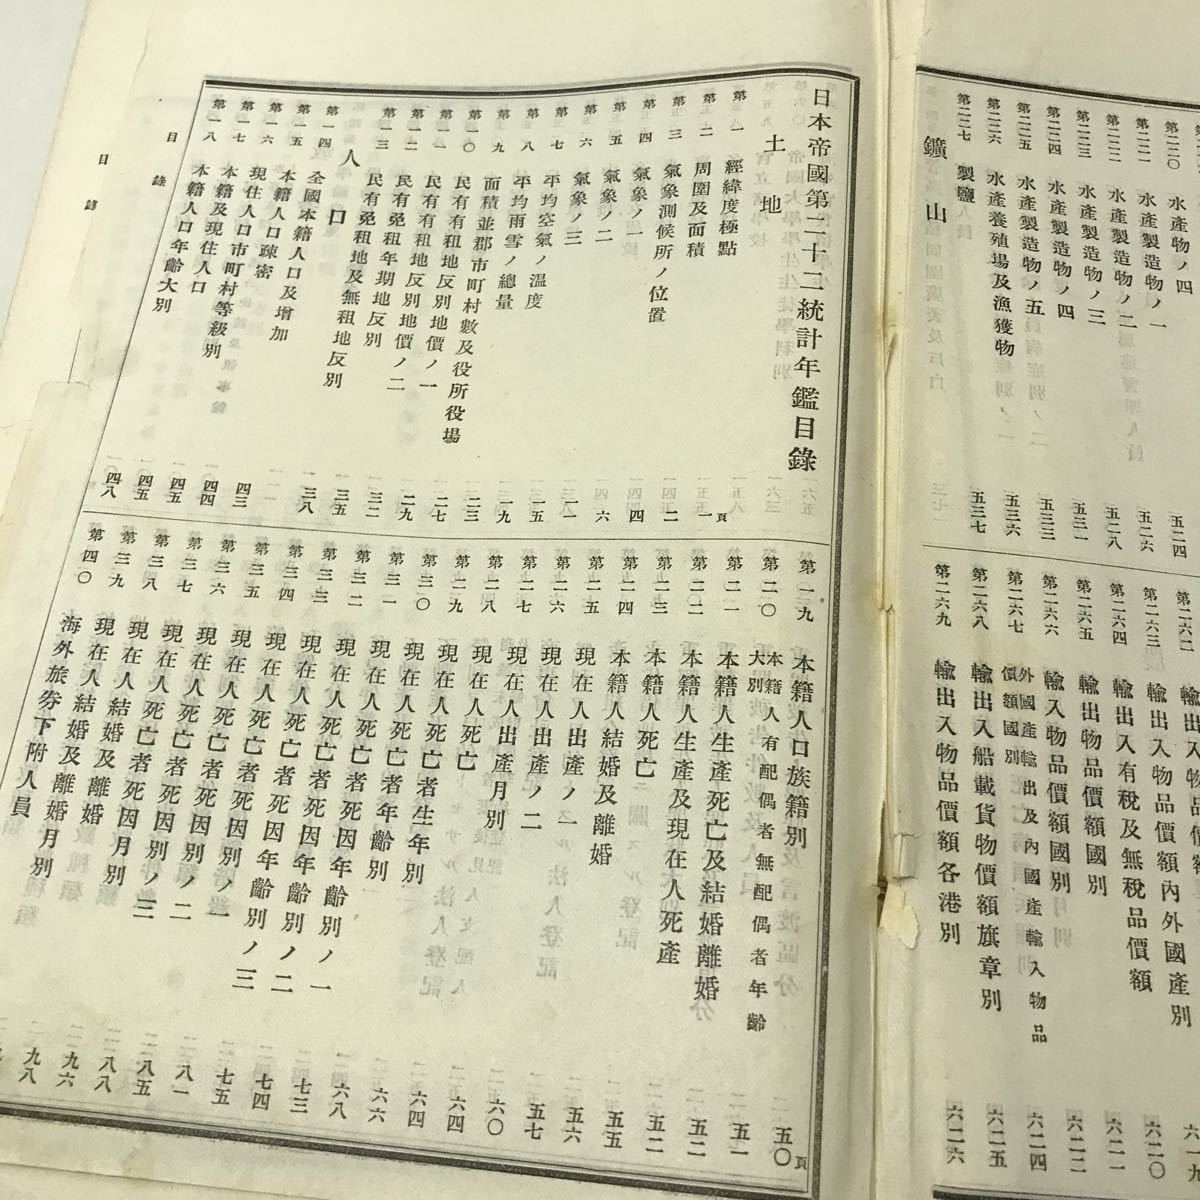 日本帝國第二十二統計年鑑目錄
土地
第一 經緯度極點 一頁
第二 周圍及面積 一
第三 氣象測候所ノ位置 二
第四 氣象ノ一 四
第五 氣象ノ二 六
第六 氣象ノ三 一一
第七 平均空氣ノ溫度 一五
第八 平均雨雪ノ總量 一九
第九 面積並郡市町村數及役所役場 二三
第一〇 民有有租地反別地價ノ一 二七
第一一 民有有租地反別地價ノ二 二九
第一二 民有免租年期地反別 三二
第一三 民有免租地及無租地反別 三五
人口
第一四 全國本籍人口及增加 三八
第一五 本籍人口疎密 四三
第一六 現住人口市町村等級別 四四
第一七 本籍及現住人口 四五
第一八 本籍人口年齡大別 四五
四八
目錄
目錄
第一九 本籍人口族籍別 五〇頁
第二〇 本籍人有配偶者無配偶者年齡大別 五一
第二一 本籍人生產死亡及結婚離婚 五二
第二二 本籍人生產及現在人死產 五二
第二三 本籍人死亡 五五
第二四 本籍人結婚及離婚 五六
第二五 現在人出產ノ一 五七
第二六 現在人出產ノ二 六〇
第二七 現在人出產月別 六四
第二八 現在人死亡 六四
第二九 現在人死亡者生年別 六六
第三〇 現在人死亡者年齡別 六八
第三一 現在人死亡者死因年齡別ノ一 七三
第三二 現在人死亡者死因年齡別ノ二 七四
第三三 現在人死亡者死因年齡別ノ三 七五
第三四 現在人死亡者死因別ノ一 八一
第三五 現在人死亡者死因別ノ二 八五
第三六 現在人死亡者死因別ノ三 八八
第三七 現在人死亡者死因月別 九六
第三八 現在人結婚及離婚 九八
第三九 現在人結婚及離婚月別
第四〇 海外旅券下附人員
第二二〇 水產物ノ四 五二四
第二二一 水產製造物ノ一 五二六
第二二二 水產製造物ノ二 五二八
第二二三 水產製造物ノ三 五三一
第二二四 水產製造物ノ四 五三三
第二二五 水產製造物ノ五 五三六
第二二六 水產養殖場及漁獲物 五三七
第二二七 製鹽
鑛山
第二六二 輸出入物品價額內外國產別 六一九
第二六三 輸出入有稅及無稅品價額 六二〇
第二六四 輸出物品價額國別 六二一
第二六五 輸入物品價額國別 六二二
第二六六 外國產輸出及內國產輸入物品價額國別 六二四
第二六七 輸出入船載貨物價額旗章別 六二五
第二六八 輸出入物品價額各港別 六二六
第二六九